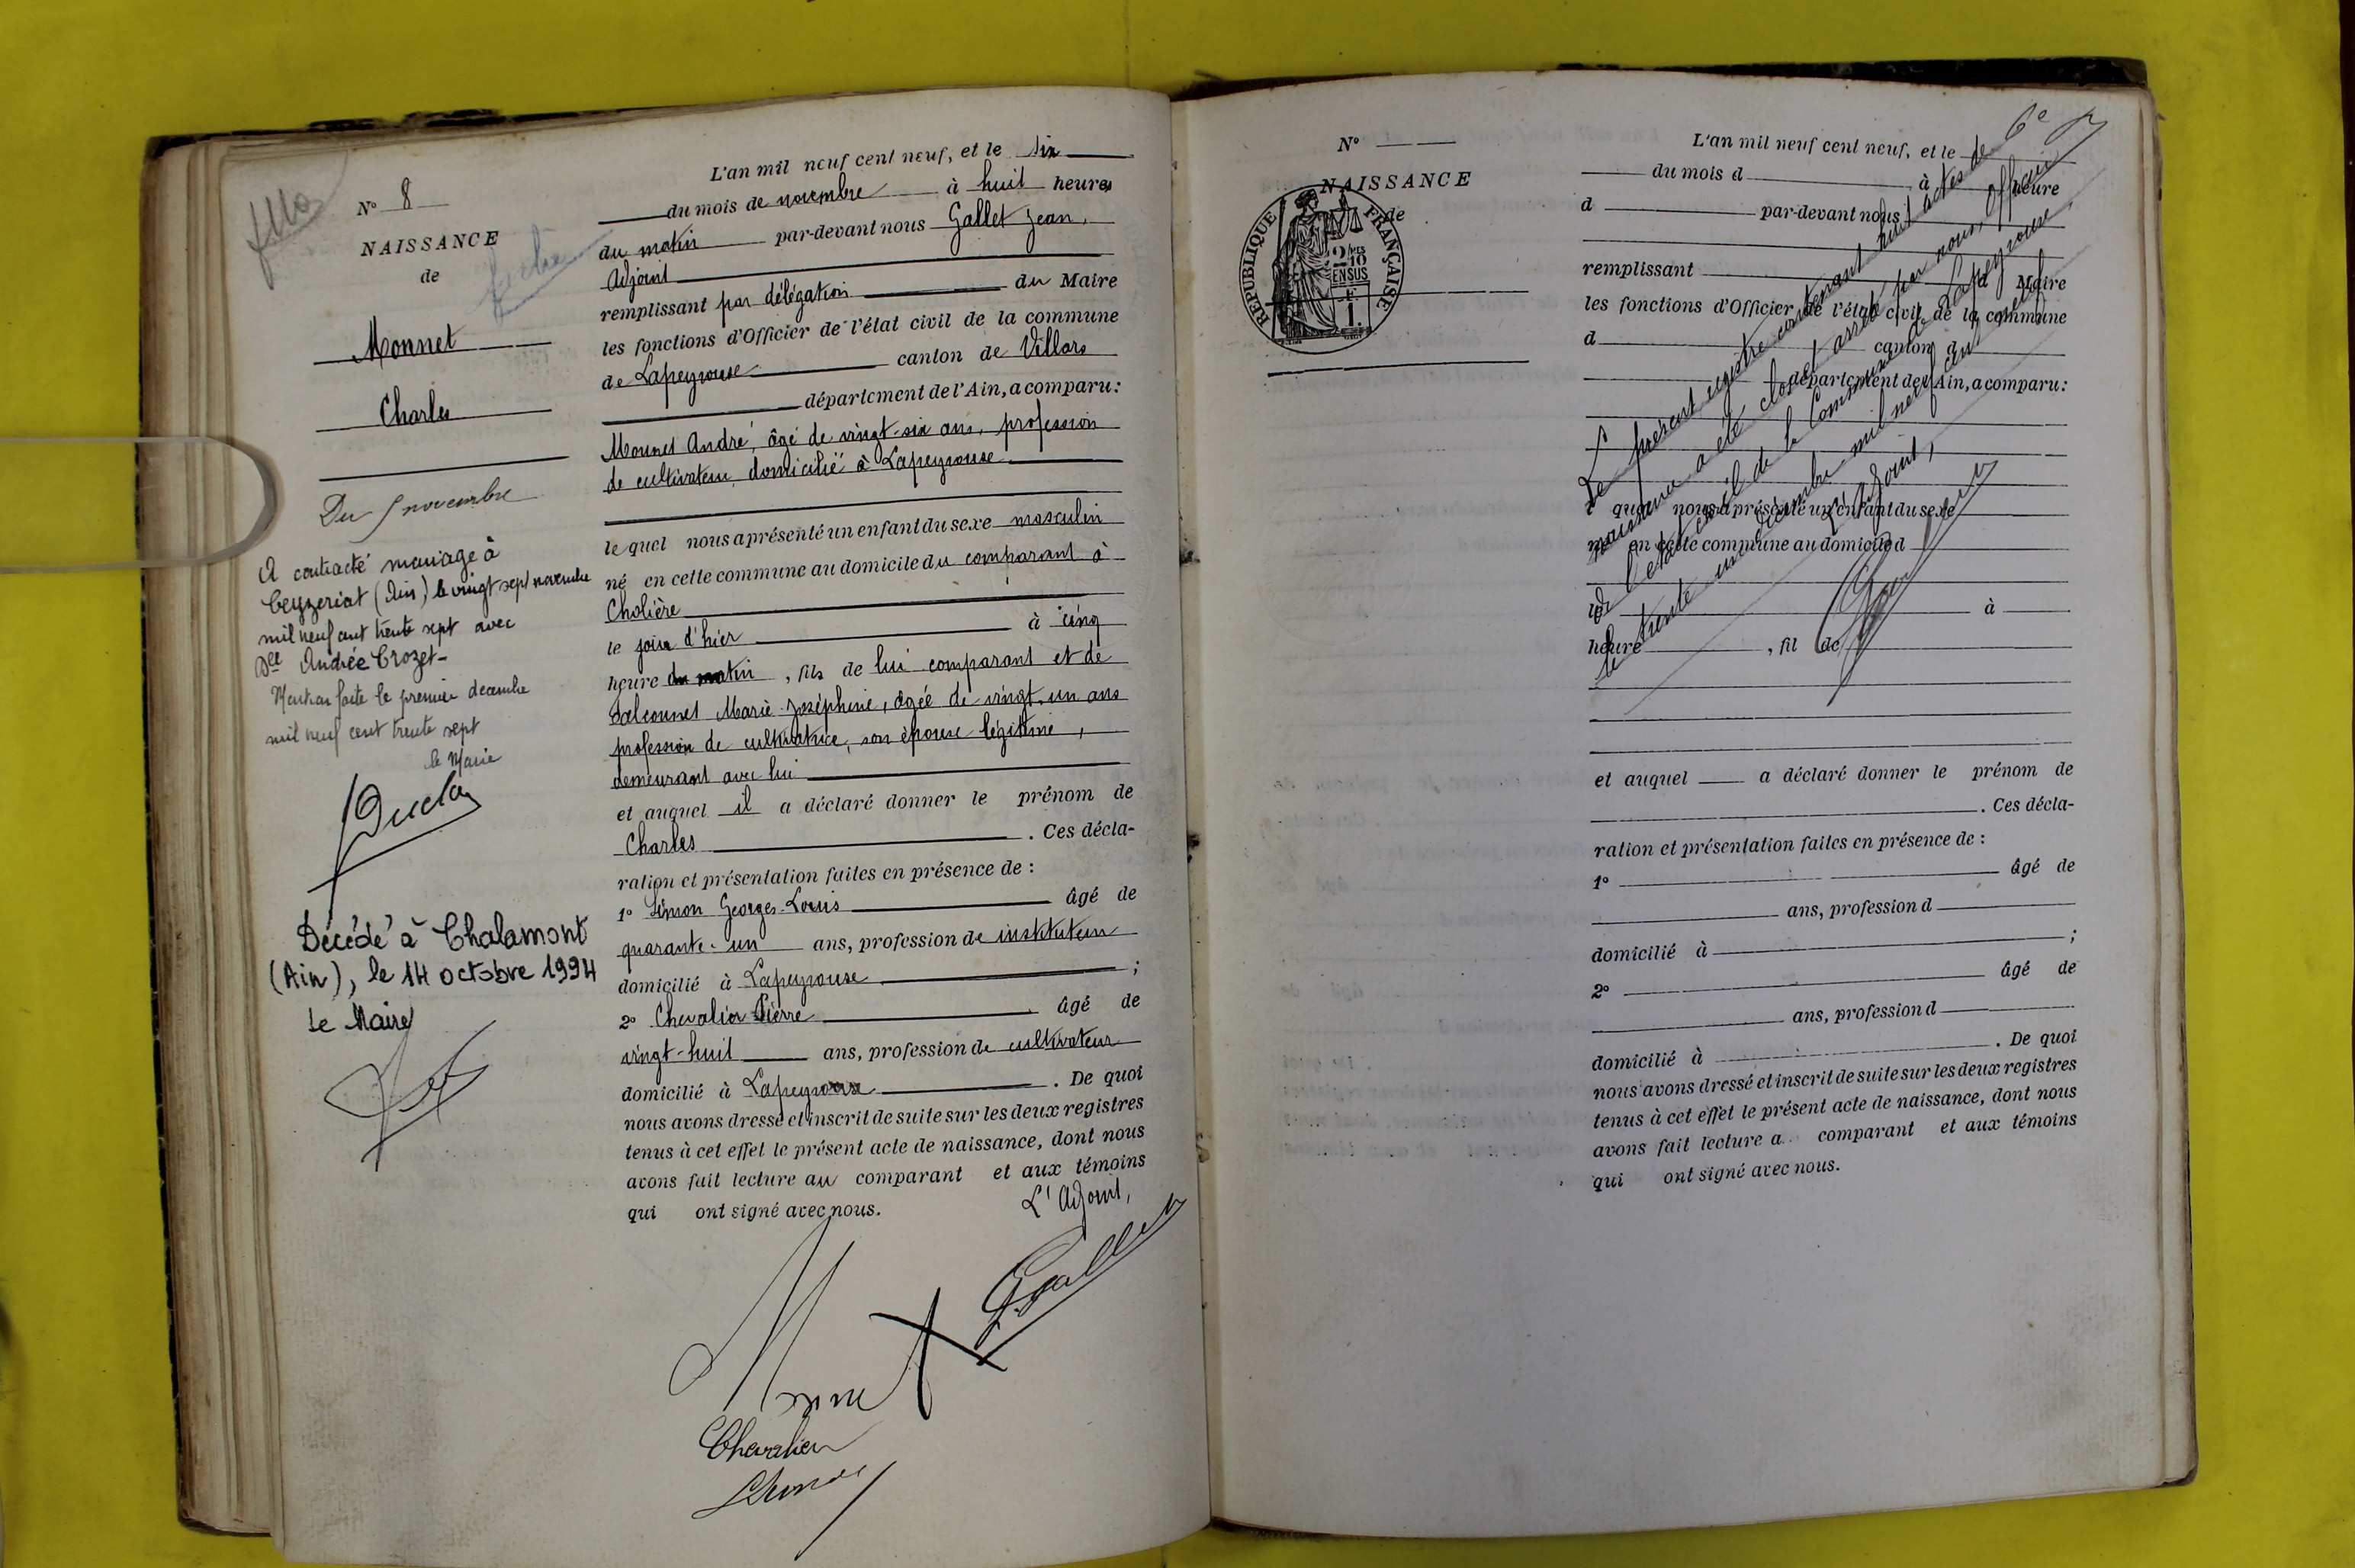 N° 8
NAISSANCE
de
Monnet
Charles
Du 5 novembre
A contracté mariage à
Ceyzeriat (Ain) le vingt sept novembre
mil neuf cent trente sept avec
Dlle Andrée Crozet-
Mention faite le premier décembre
mil neuf cent trente sept
le Maire
Décédé à Chalamont
(Ain), le 14 octobre 1994
Le Maire
L'an mil neuf cent neuf, et le six
du mois de novembre à huit heures
du matin par-devant nous Gallet Jean,
Adjoint
remplissant par délégation du Maire
les fonctions d'Officier de l'état civil de la commune
de Lapeyrouse canton de Villars
département de l'Ain, a comparu:
Monnet André, âgé de vingt-six ans, profession
de cultivateur, domicilié à Lapeyrouse
lequel nous a présenté un enfant du sexe masculin
né en cette commune au domicile du comparant à
Cholière
le jour d'hier à cinq
heure du matin, fils de lui comparant et de
Marie Joséphine, âgée de vingt-un ans
profession de cultivatrice, son épouse légitime,
demeurant avec lui
et auquel il a déclaré donner le prénom de
Charles. Ces décla-
ration et présentation faites en présence de :
1° Simon Georges-Louis âgé de
quarante-un ans, profession de instituteur
domicilié à Lapeyrouse ;
2° Chevalier Pierre âgé de
vingt-huit ans, profession de cultivateur
domicilié à Lapeyrouse. De quoi
nous avons dressé et inscrit de suite sur les deux registres
tenus à cet effet le présent acte de naissance, dont nous
avons fait lecture au comparant et aux témoins
qui ont signé avec nous.
L'Adjoint,
Gallet
Monnet
Chevalier
N°
NAISSANCE
de
RÉPUBLIQUE FRANÇAISE
2/10 EN SUS
1 F.
L'an mil neuf cent neuf, et le
du mois d à heure
d par-devant nous
remplissant d Maire
les fonctions d'Officier de l'état civil de la commune
d canton d
département de l'Ain, a comparu:
l quel nous a présenté un enfant du sexe
n en cette commune au domicile d
l à
heure, fil de
et auquel a déclaré donner le prénom de
. Ces décla-
ration et présentation faites en présence de :
1° âgé de
ans, profession d
domicilié à ;
2° âgé de
ans, profession d
domicilié à . De quoi
nous avons dressé et inscrit de suite sur les deux registres
tenus à cet effet le présent acte de naissance, dont nous
avons fait lecture a comparant et aux témoins
qui ont signé avec nous.
Le présent registre contenant huit actes de
naissance a été clos et arrêté par nous, Officier
de l'état civil de la Commune de Lapeyrouse
le trente un décembre mil neuf cent neuf.
L'Adjoint,